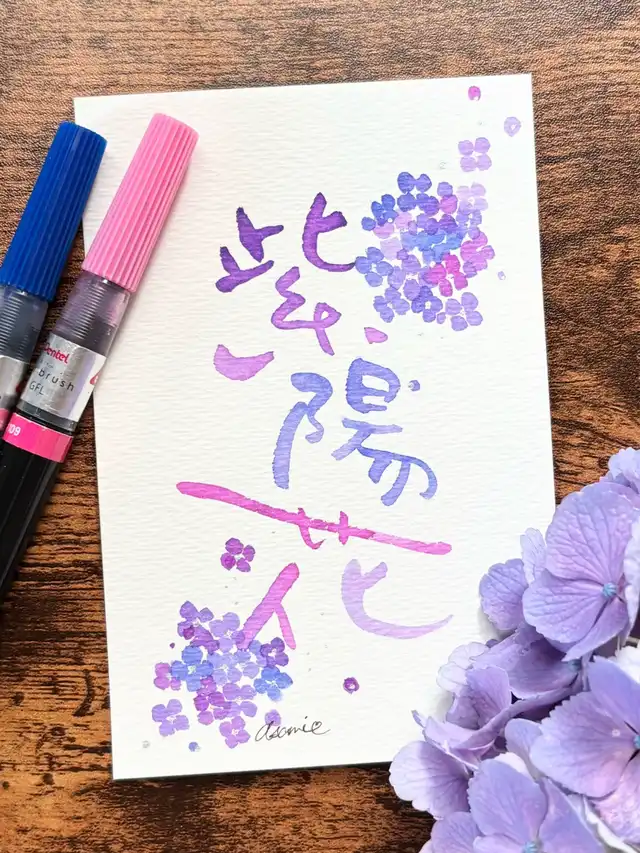 紫
陽
花
Asamie
Pentel
brush
GFL
109